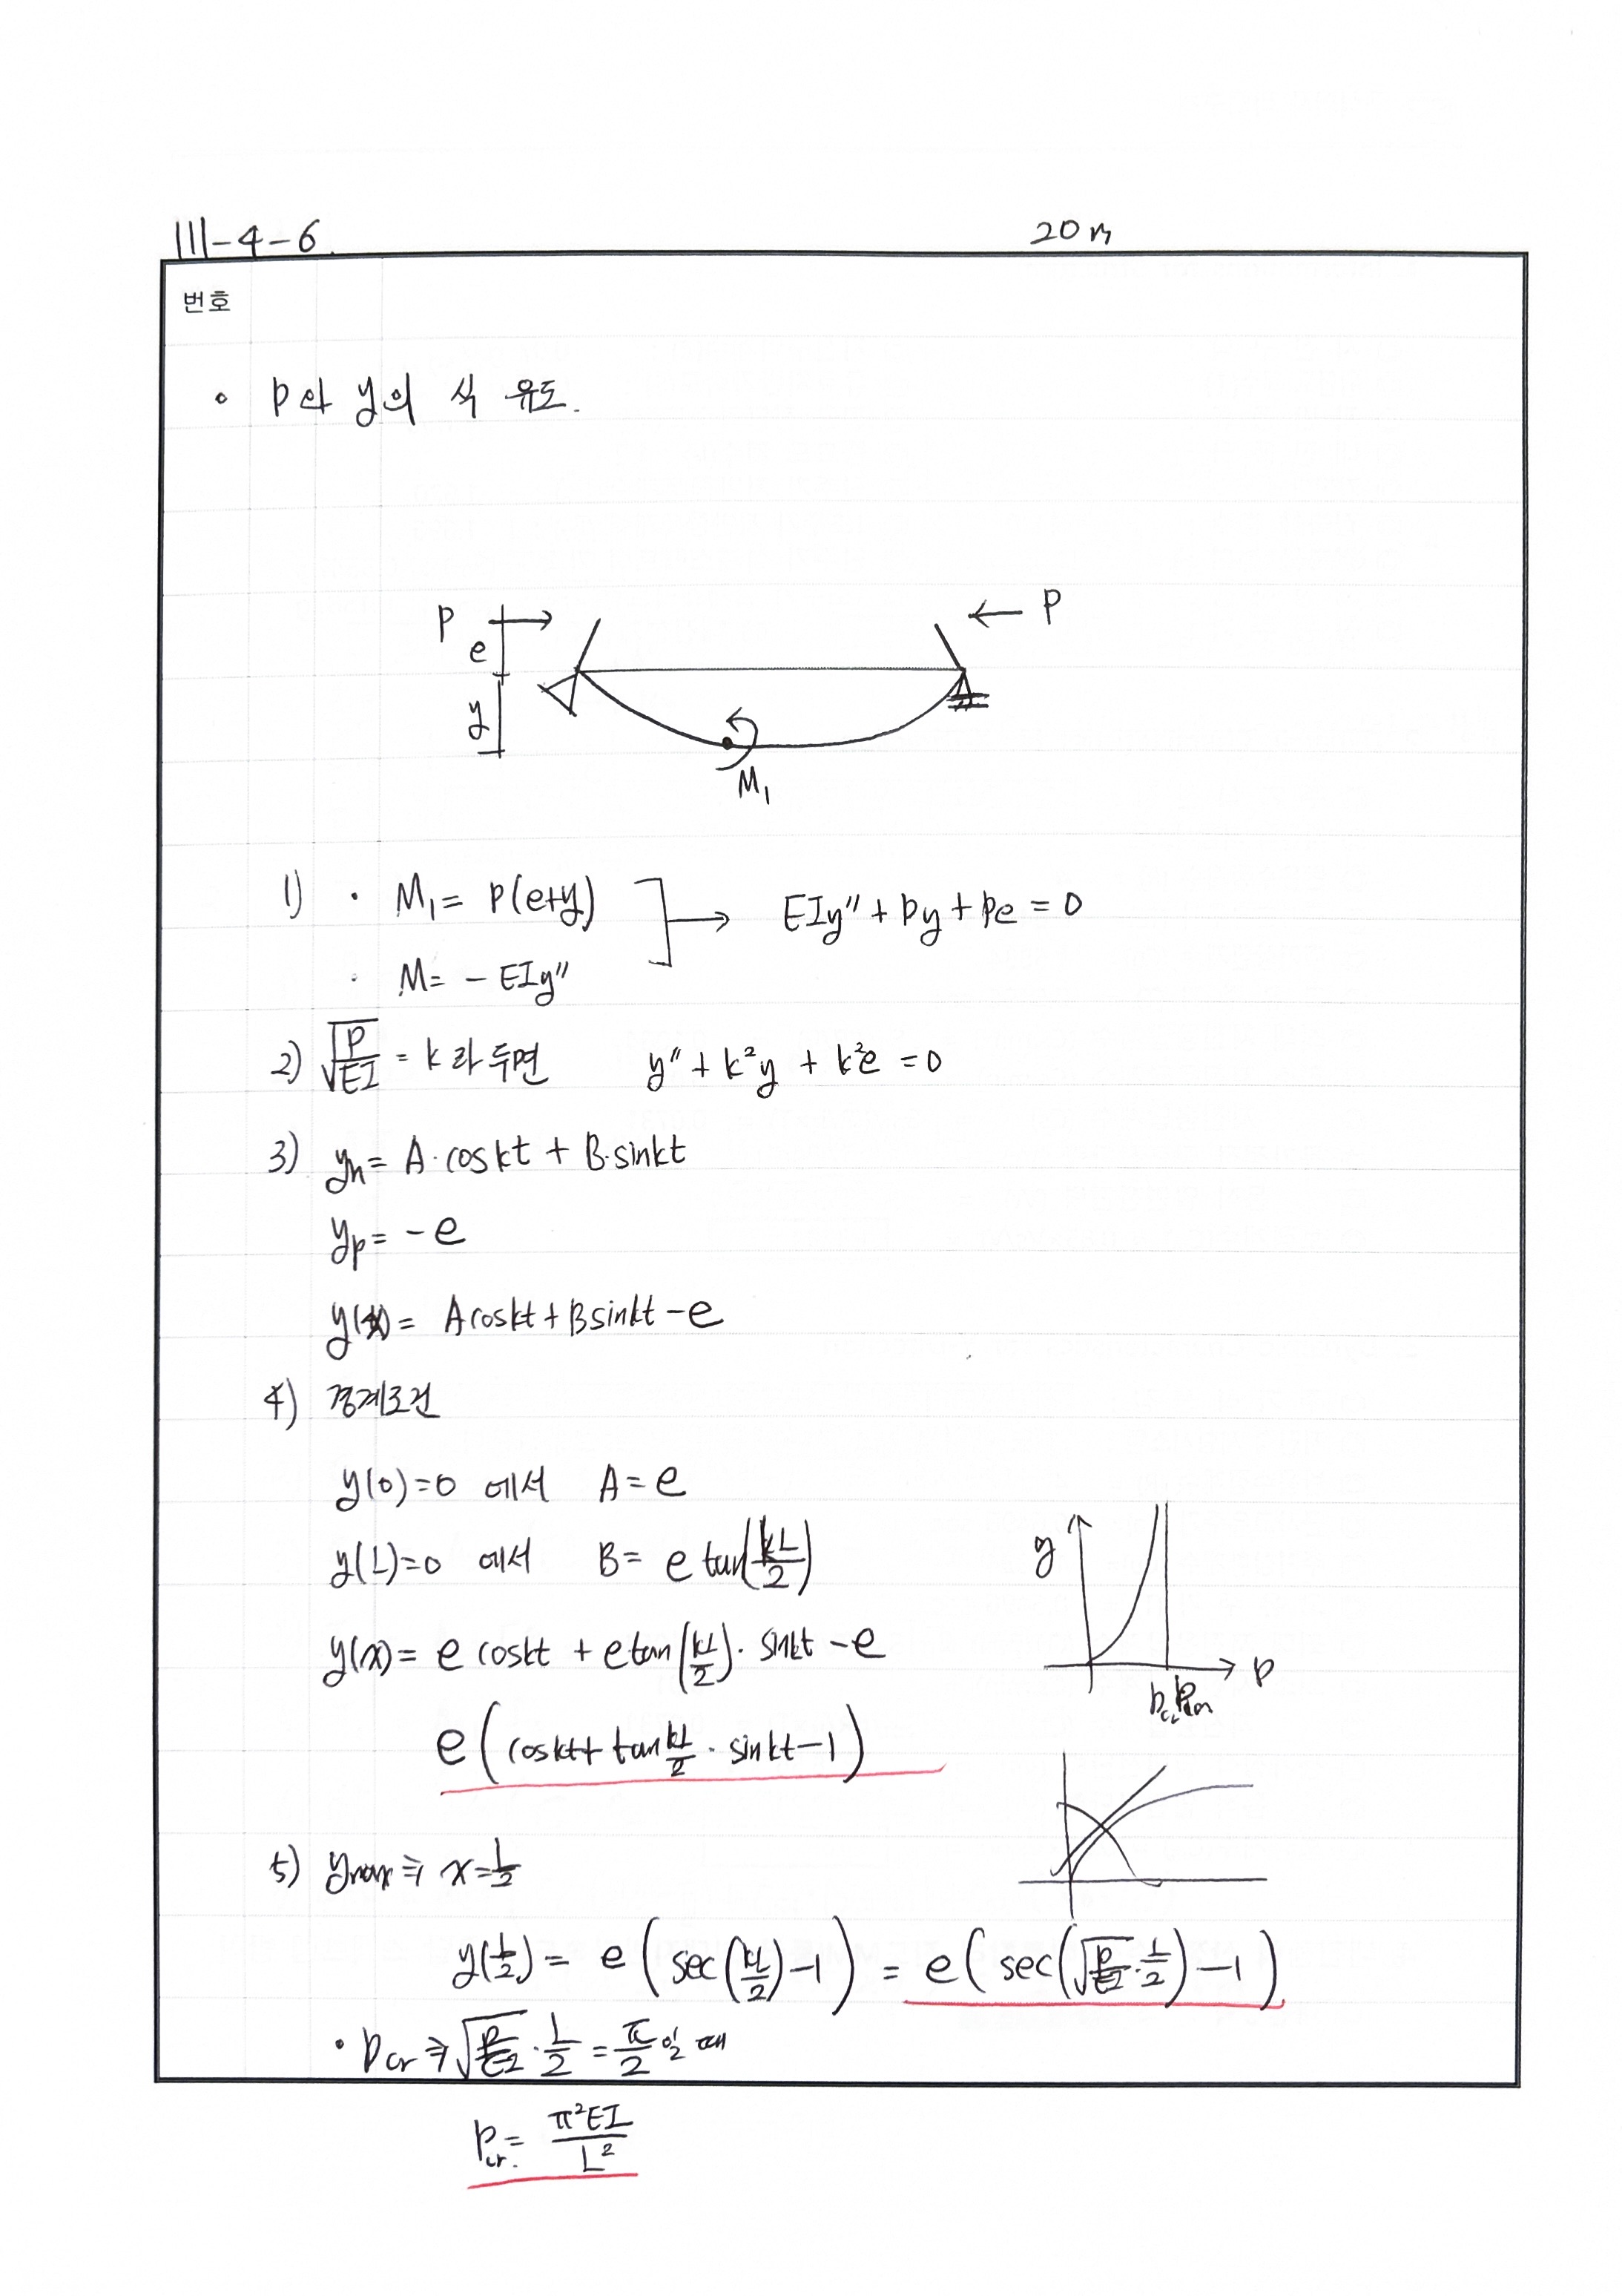 111-4-6.
20m
번호
• P와 y의 식 유도.
P
e
y
← P
M₁
1) · M₁ = P(e+y) → EIy″ + Py + Pe = 0
· M = - EIy″
2) √(P/EI) = k 라 두면 y″ + k²y + k²e = 0
3) yₕ = A·coskt + B·sinkt
yₚ = -e
y(x) = Acoskt + Bsinkt - e
4) 경계조건
y(0)=0 에서 A = e
y(L)=0 에서 B = e tan(kL/2)
y(x) = e coskt + e tan(kL/2)· sinkt - e
e(coskt + tan kL/2 · sinkt - 1)
y
P
Pcr
5) ymax ⇒ x = L/2
y(L/2) = e(sec(kL/2) - 1) = e(sec(√(P/EI)·L/2) - 1)
• Pcr ⇒ √(P/EI)·L/2 = π/2 일 때
Pcr. = π²EI/L²